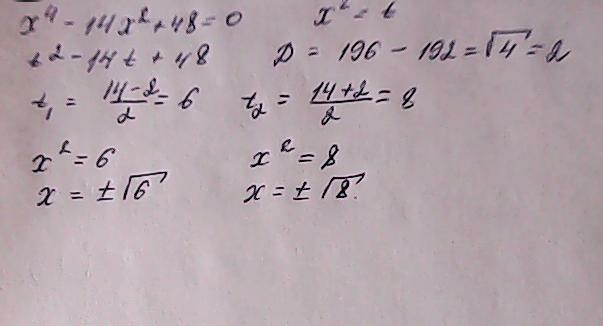 x⁴ - 14x² + 48 = 0   x² = t
t² - 14t + 48   D = 196 - 192 = √4 = 2
t₁ = (14-2)/2 = 6   t₂ = (14+2)/2 = 8
x² = 6   x² = 8
x = ±√6   x = ±√8.